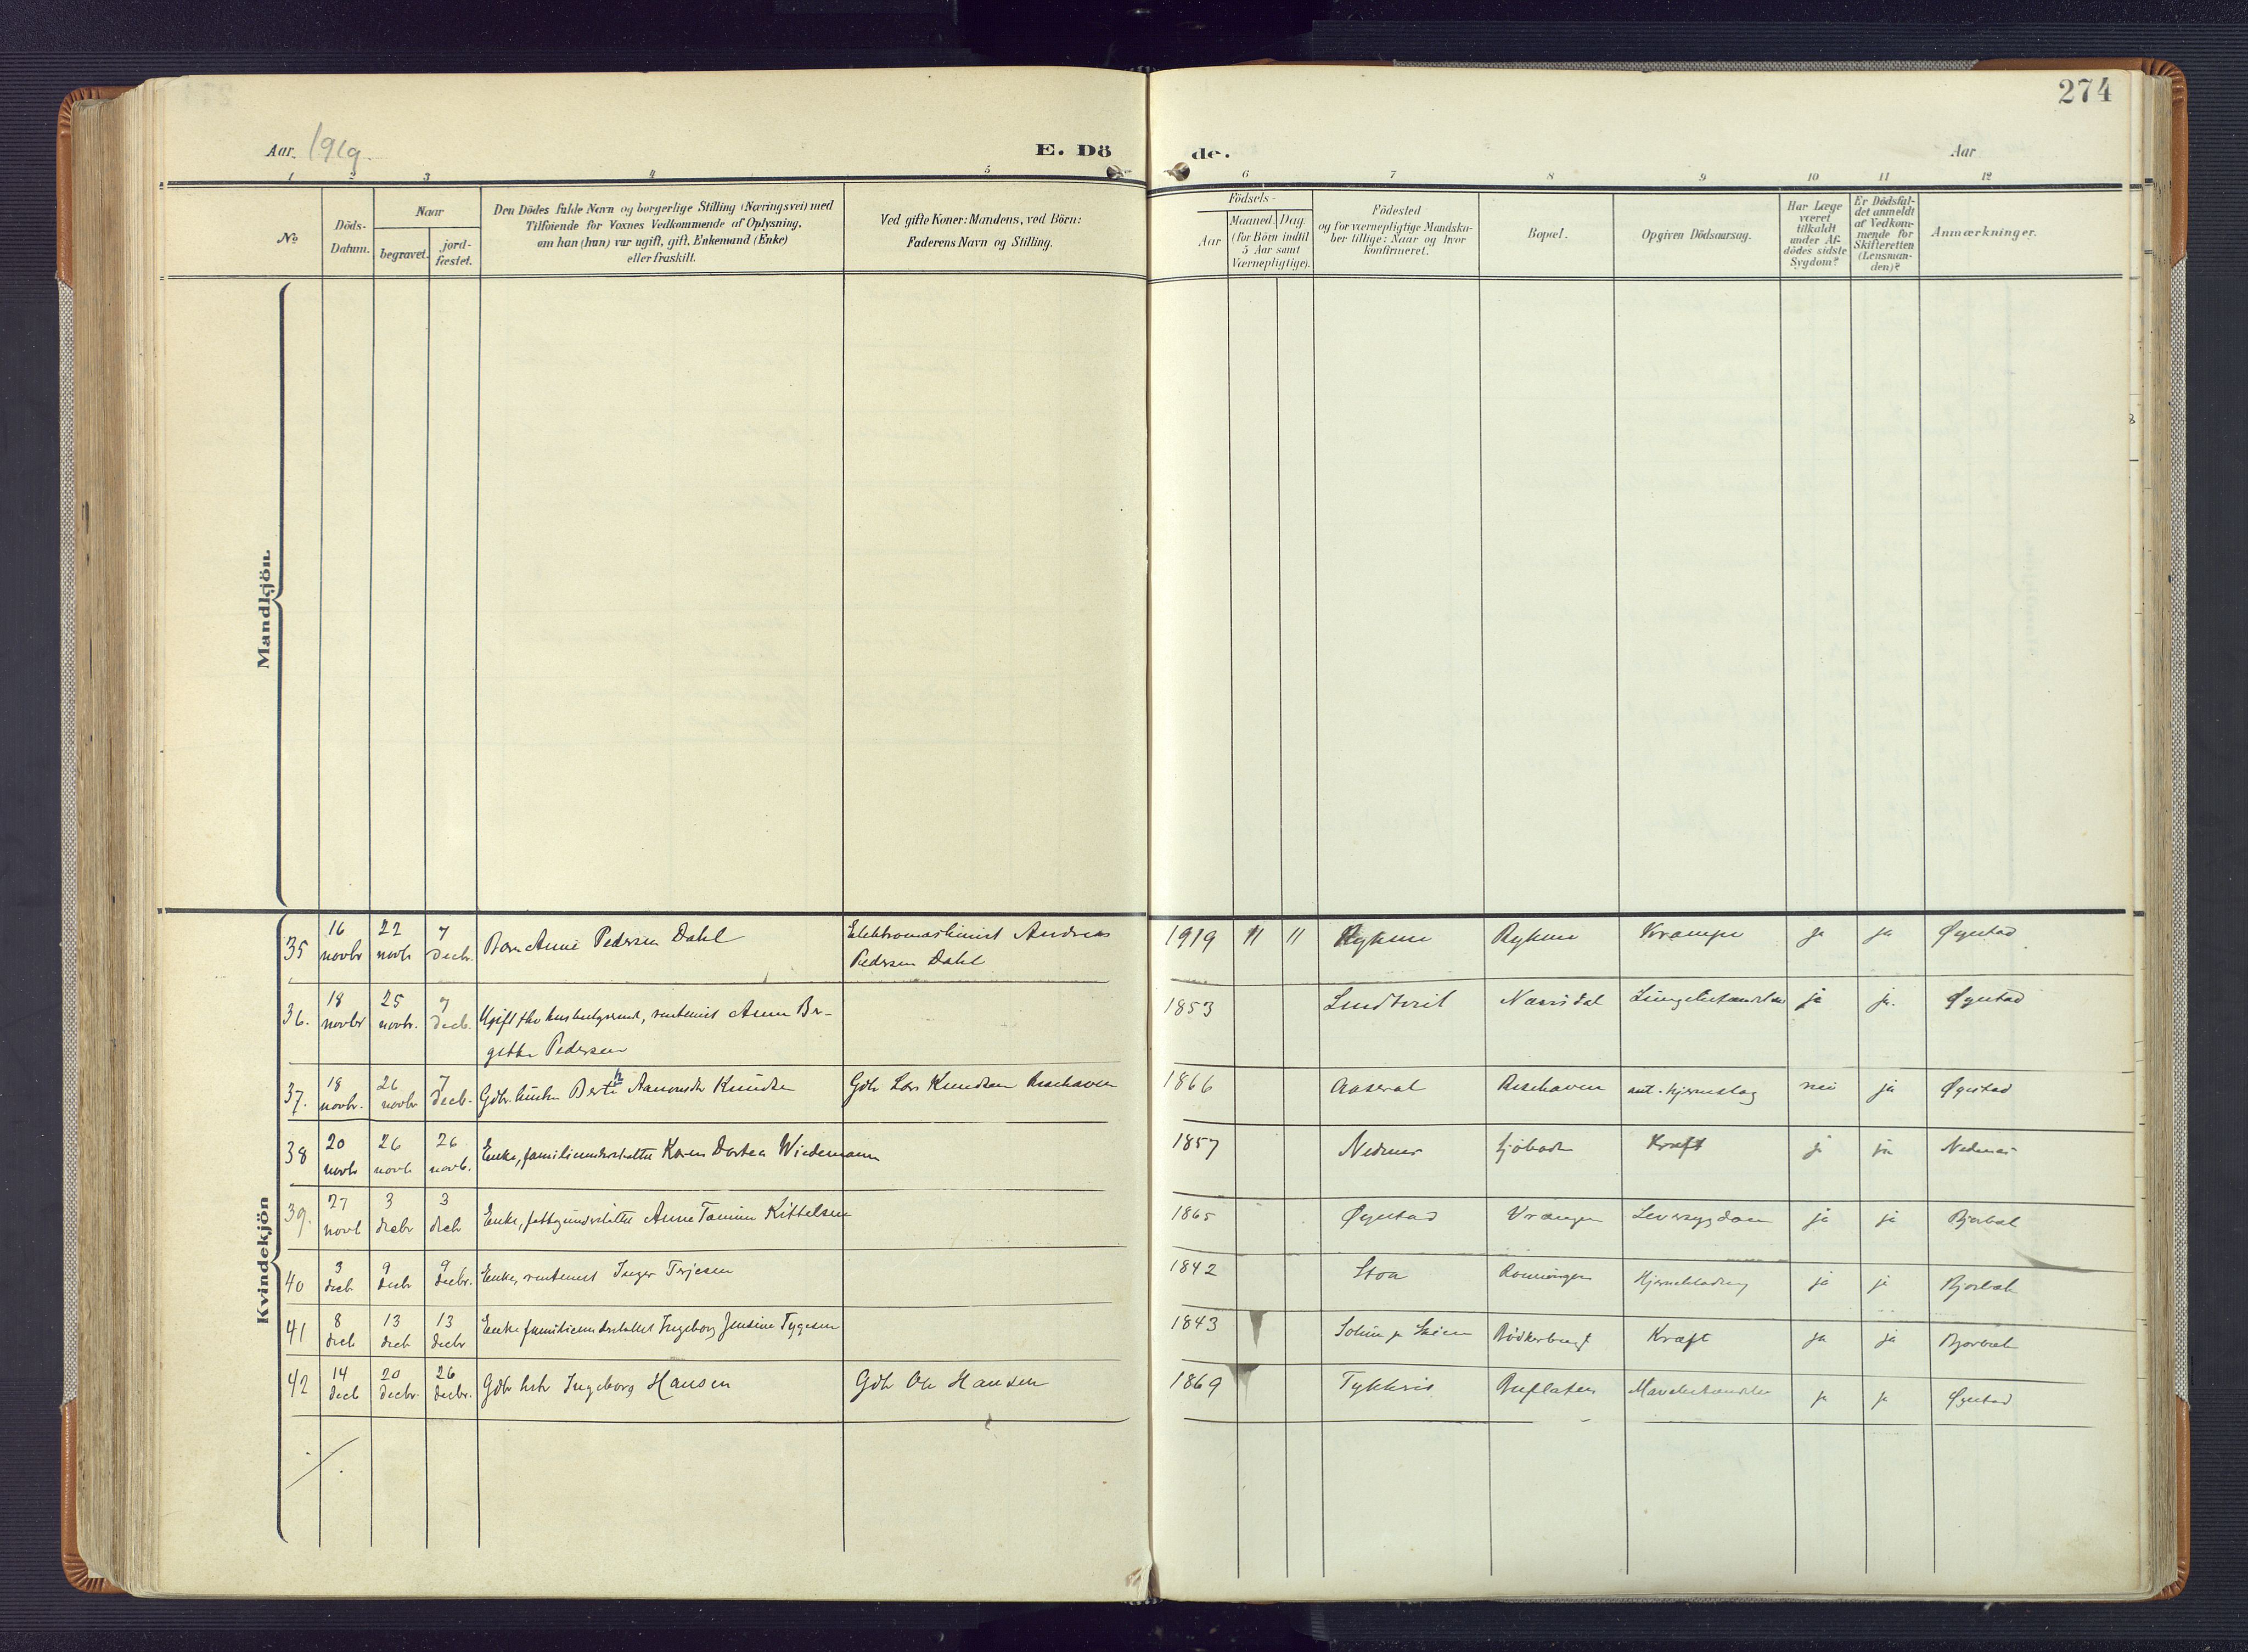 274
Aar 1919.
E. Dö
de.
Aar
1 2 3 4 5 6 7 8 9 10 11 12
No
Döds-
Datum.
Naar
begravet.
jord-
fæstet.
Den Dödes fulde Navn og borgerlige Stilling (Næringsvei) med
Tilföiende for Voxnes Vedkommende af Oplysning,
om han (hun) var ugift, gift, Enkemand (Enke)
eller fraskilt.
Ved gifte Koner: Mandens, ved Börn:
Faderens Navn og Stilling.
Födsels-
Aar
Maaned Dag
(for Börn indtil
5 Aar samt
Værnepligtige).
Födested
og for værnepligtige Mandska-
ber tillige: Naar og hvor
konfirmeret.
Bopæl.
Opgiven Dödsaarsag.
Har Læge
været
tilkaldt
under Af-
dödes sidste
Sygdom?
Er Dödsfal-
det anmeldt
af Vedkom-
mende for
Skifteretten
(Lensman-
den)?
Anmærkninger.
Mandkjön.
Kvindekjön
35 16 novbr 22 novb 7 decbr. Barn Anne Pedersen Dahl Elektromaskinist Andreas
Pedersen Dahl 1919 11 11 Rykene Rykene Krampe ja ja Øyestad
36. 18 novbr 25 novbr. 7 decb. Ugift fhv husbestyrerinde, rentenist Anne Br-
gitte Pedersen 1853 Lundtveit Næsisdal Lungebetændelse ja ja. Øyestad
37. 18 novbr. 26 novbr 7 decb. Gdbr. hustru Berthe Aanonsdtr Knudsen Gdb Lars Knudsen Assehaven 1866 Aaseral Assehaven ant. hjerneslag nei ja Øyestad
38 20 novb 26 novb 26 novb. Enke, familieunderstøttet Karen Dortea Wiedemann 1857 Nedenes Sjøbodn Kræft ja ja Nedenæs
39. 27 novb 3 decbr 3 decb Enke, fattigunderstøttet Anne Tomine Kittelsen 1865 Øyestad Vrængen Leversygdom ja ja Bjorbæk
40 3 decb 9 decb 9 decbr. Enke, rentenist Inger Terjesen 1842 Stoa Rønningen Hjerneblødning ja ja Bjorbæk
41 8 decb 13 decb 13 decbr Enke familieunderstøttet Ingeborg Jensine Tygesen 1843 Solum pr Skien Bødkerbugt Kræft ja ja Bjorbæk
42 14 decb 20 decbr. 26 decbr. Gdb hstr Ingeborg Hansen Gdb Ole Hansen 1869 Tykhris Buflaten Mavebetændelse ja ja Øyestad